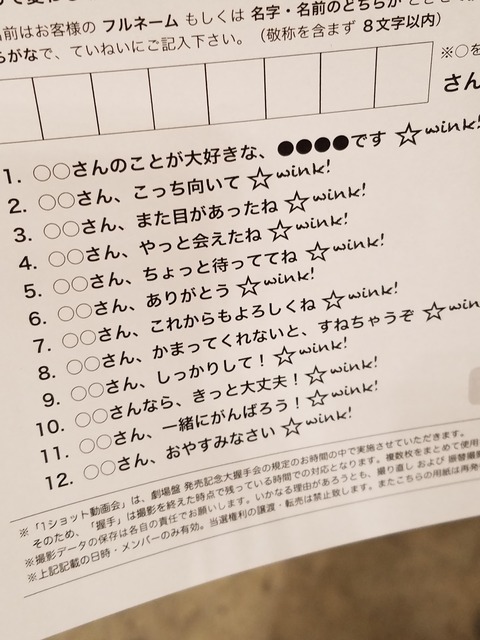 前はお客様の フルネーム もしくは 名字・名前のどちらか
らがなで、ていねいにご記入下さい。（敬称を含まず 8文字以内）
※○を
さん
1. ○○さんのことが大好きな、●●●●です ☆wink!
2. ○○さん、こっち向いて ☆wink!
3. ○○さん、また目があったね ☆wink!
4. ○○さん、やっと会えたね ☆wink!
5. ○○さん、ちょっと待っててね ☆wink!
6. ○○さん、ありがとう ☆wink!
7. ○○さん、これからもよろしくね ☆wink!
8. ○○さん、かまってくれないと、すねちゃうぞ ☆win
9. ○○さん、しっかりして！ ☆wink!
10. ○○さんなら、きっと大丈夫！ ☆wink!
11. ○○さん、一緒にがんばろう！ ☆wink!
12. ○○さん、おやすみなさい ☆wink!
※「1ショット動画会」は、劇場盤 発売記念大握手会の規定のお時間の中で実施させていただきます。
そのため、「握手」は撮影を終えた時点で残っている時間での対応となります。複数枚をまとめて使用
※撮影データの保存は各自の責任でお願いします。いかなる理由があろうとも、撮り直し および 振替撮影
※上記記載の日時・メンバーのみ有効。当選権利の譲渡・転売は禁止致します。またこちらの用紙は再発